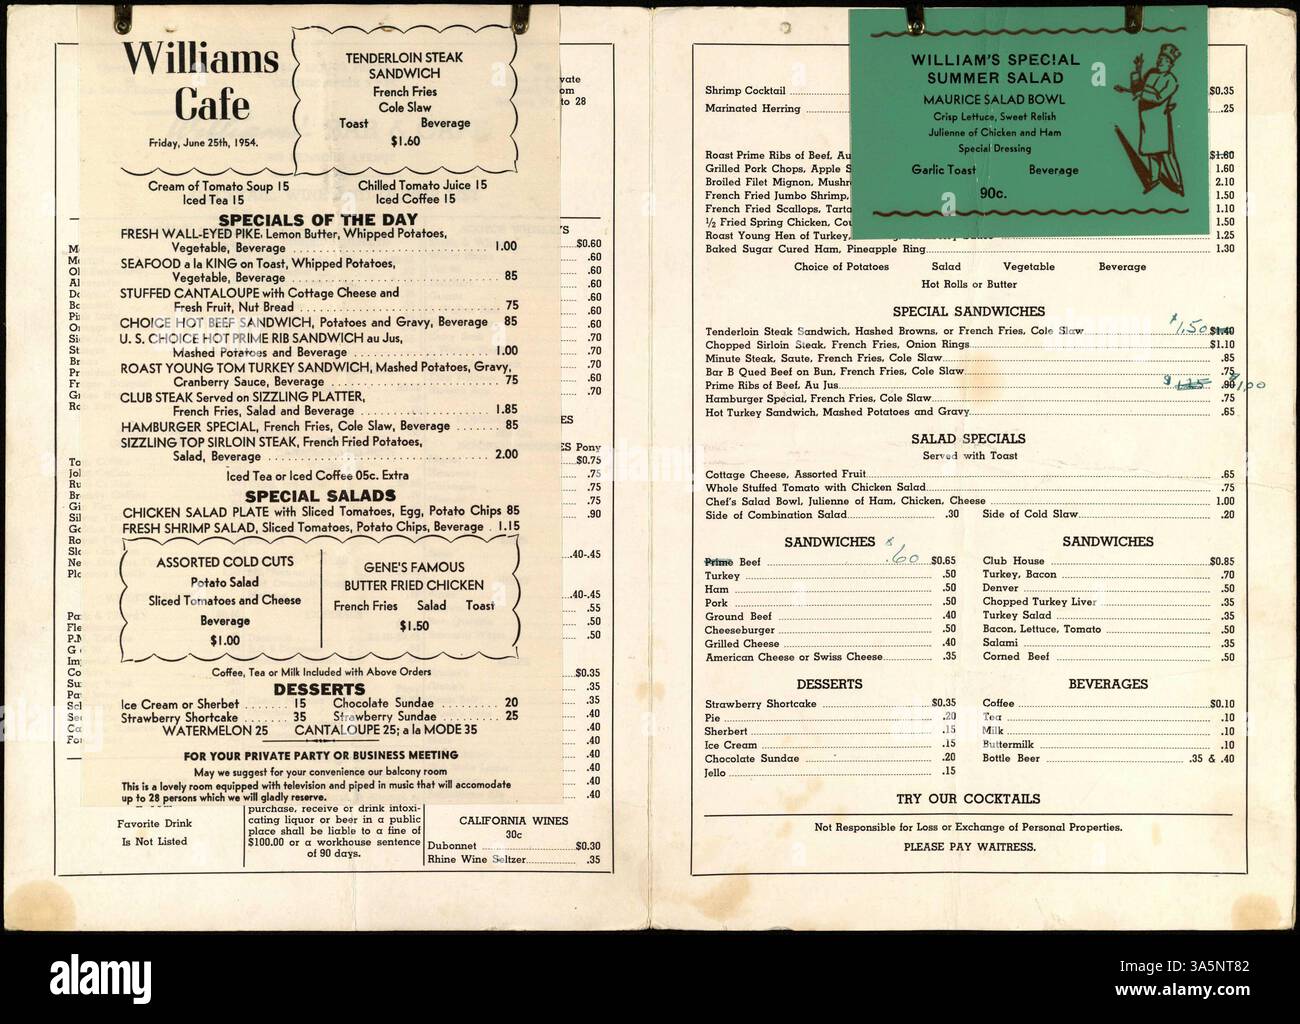 Williams
Cafe
Friday, June 25th, 1954.
TENDERLOIN STEAK
SANDWICH
French Fries
Cole Slaw
Toast Beverage
$1.60
Cream of Tomato Soup 15 Chilled Tomato Juice 15
Iced Tea 15 Iced Coffee 15
SPECIALS OF THE DAY
FRESH WALL-EYED PIKE, Lemon Butter, Whipped Potatoes,
Vegetable, Beverage 1.00
SEAFOOD a la KING on Toast, Whipped Potatoes,
Vegetable, Beverage 85
STUFFED CANTALOUPE with Cottage Cheese and
Fresh Fruit, Nut Bread 75
CHOICE HOT BEEF SANDWICH, Potatoes and Gravy, Beverage 85
U. S. CHOICE HOT PRIME RIB SANDWICH au Jus,
Mashed Potatoes and Beverage 1.00
ROAST YOUNG TOM TURKEY SANDWICH, Mashed Potatoes, Gravy,
Cranberry Sauce, Beverage 75
CLUB STEAK Served on SIZZLING PLATTER,
French Fries, Salad and Beverage 1.85
HAMBURGER SPECIAL, French Fries, Cole Slaw, Beverage 85
SIZZLING TOP SIRLOIN STEAK, French Fried Potatoes,
Salad, Beverage 2.00
Iced Tea or Iced Coffee 05c. Extra
SPECIAL SALADS
CHICKEN SALAD PLATE with Sliced Tomatoes, Egg, Potato Chips 85
FRESH SHRIMP SALAD, Sliced Tomatoes, Potato Chips, Beverage 1.15
ASSORTED COLD CUTS
Potato Salad
Sliced Tomatoes and Cheese
Beverage
$1.00
GENE'S FAMOUS
BUTTER FRIED CHICKEN
French Fries Salad Toast
$1.50
Coffee, Tea or Milk Included with Above Orders
DESSERTS
Ice Cream or Sherbet 15 Chocolate Sundae 20
Strawberry Shortcake 35 Strawberry Sundae 25
WATERMELON 25 CANTALOUPE 25; a la MODE 35
FOR YOUR PRIVATE PARTY OR BUSINESS MEETING
May we suggest for your convenience our balcony room
This is a lovely room equipped with television and piped in music that will accomodate
up to 28 persons which we will gladly reserve.
Favorite Drink
Is Not Listed
purchase, receive or drink intoxi-
cating liquor or beer in a public
place shall be liable to a fine of
$100.00 or a workhouse sentence
of 90 days.
CALIFORNIA WINES
30c
Dubonnet $0.30
Rhine Wine Seltzer .35
to 28
$0.60
.60
.60
.60
.60
.60
.60
.70
.70
.70
.60
.70
Pony
$0.75
.75
.75
.75
.90
.40-.45
.40-.45
.55
.50
.50
$0.35
.35
.35
.40
.40
.40
.40
.40
.40
.40
WILLIAM'S SPECIAL
SUMMER SALAD
MAURICE SALAD BOWL
Crisp Lettuce, Sweet Relish
Julienne of Chicken and Ham
Special Dressing
Garlic Toast Beverage
90c.
Shrimp Cocktail $0.35
Marinated Herring .25
Roast Prime Ribs of Beef, Au $1.60
Grilled Pork Chops, Apple S 1.60
Broiled Filet Mignon, Mushr 2.10
French Fried Jumbo Shrimp, 1.50
French Fried Scallops, Tarta 1.10
½ Fried Spring Chicken, Cou 1.50
Roast Young Hen of Turkey, 1.25
Baked Sugar Cured Ham, Pineapple Ring 1.30
Choice of Potatoes Salad Vegetable Beverage
Hot Rolls or Butter
SPECIAL SANDWICHES
Tenderloin Steak Sandwich, Hashed Browns, or French Fries, Cole Slaw $1.50 $1.40
Chopped Sirloin Steak, French Fries, Onion Rings $1.10
Minute Steak, Saute, French Fries, Cole Slaw .85
Bar B Qued Beef on Bun, French Fries, Cole Slaw .75
Prime Ribs of Beef, Au Jus $1.25 .90 $1.00
Hamburger Special, French Fries, Cole Slaw .75
Hot Turkey Sandwich, Mashed Potatoes and Gravy .65
SALAD SPECIALS
Served with Toast
Cottage Cheese, Assorted Fruit .65
Whole Stuffed Tomato with Chicken Salad .75
Chef's Salad Bowl, Julienne of Ham, Chicken, Cheese 1.00
Side of Combination Salad .30 Side of Cold Slaw .20
SANDWICHES
Prime Beef $.60 $0.65
Turkey .50
Ham .50
Pork .50
Ground Beef .40
Cheeseburger .50
Grilled Cheese .40
American Cheese or Swiss Cheese .35
SANDWICHES
Club House $0.85
Turkey, Bacon .70
Denver .50
Chopped Turkey Liver .35
Turkey Salad .35
Bacon, Lettuce, Tomato .50
Salami .35
Corned Beef .50
DESSERTS
Strawberry Shortcake $0.35
Pie .20
Sherbert .15
Ice Cream .15
Chocolate Sundae .20
Jello .15
BEVERAGES
Coffee $0.10
Tea .10
Milk .10
Buttermilk .10
Bottle Beer .35 & .40
TRY OUR COCKTAILS
Not Responsible for Loss or Exchange of Personal Properties.
PLEASE PAY WAITRESS.
alamy
Image ID: 3A5NT82
www.alamy.com